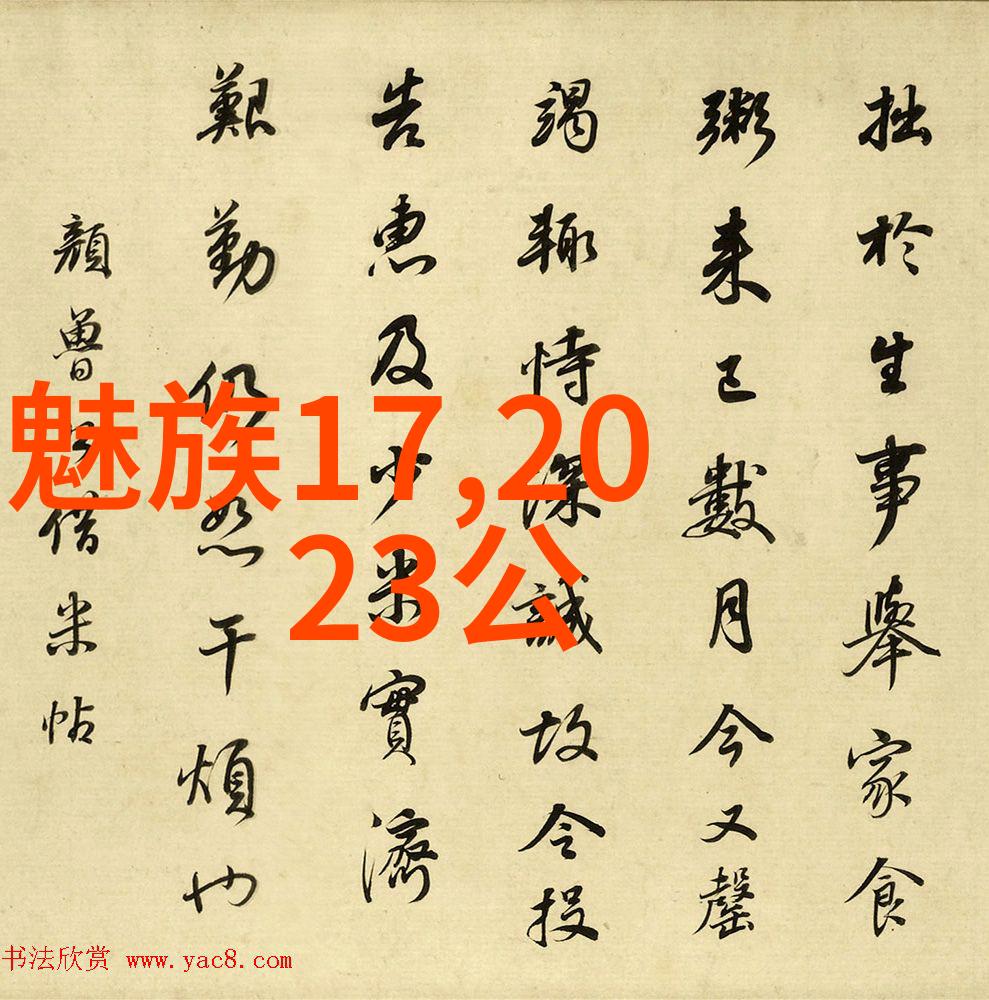 拙於生事舉家食
粥来已數月今又罄
竭輙恃深誠故令投
告惠及少米實濟
艱勤仍恕干煩也
顔魯公借米帖
魅族17,20
23公
书法欣赏 www.yac8.com